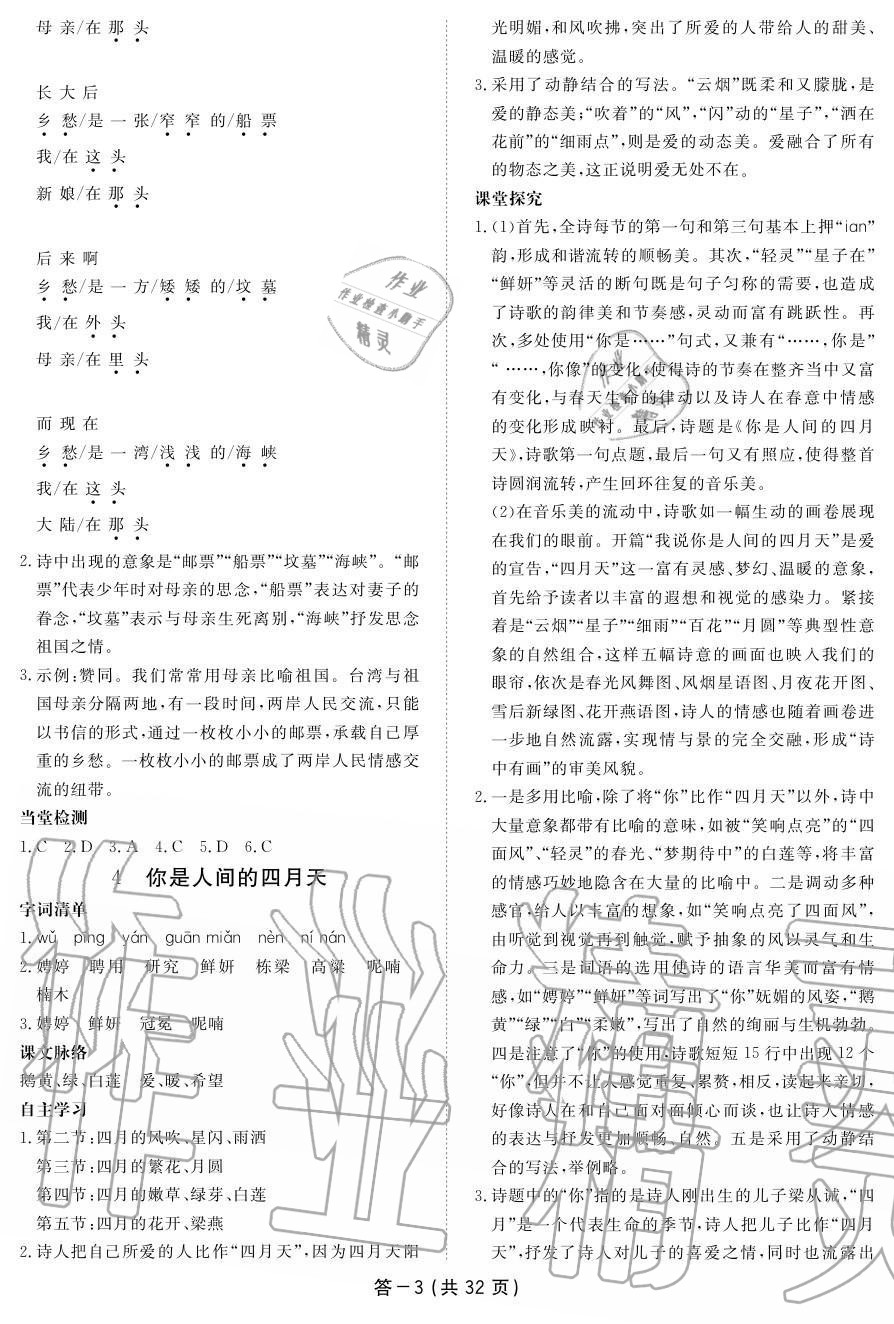 母 亲/在 那 头
长 大 后
乡 愁/是 一 张/窄 窄 的/船 票
我/在 这 头
新 娘/在 那 头
后 来 啊
乡 愁/是 一 方/矮 矮 的/坟 墓
我/在 外 头
母 亲/在 里 头
而 现 在
乡 愁/是 一 湾/浅 浅 的/海 峡
我/在 这 头
大 陆/在 那 头
2.诗中出现的意象是“邮票”“船票”“坟墓”“海峡”。“邮
票”代表少年时对母亲的思念,“船票”表达对妻子的
眷念,“坟墓”表示与母亲生死离别,“海峡”抒发思念
祖国之情。
3.示例:赞同。我们常常用母亲比喻祖国。台湾与祖
国母亲分隔两地,有一段时间,两岸人民交流,只能
以书信的形式,通过一枚枚小小的邮票,承载自己厚
重的乡愁。一枚枚小小的邮票成了两岸人民情感交
流的纽带。
当堂检测
1.C 2.D 3.A 4.C 5.D 6.C
4 你是人间的四月天
字词清单
1.wǔ pīng yán guān miǎn nèn ní nán
2.娉婷 聘用 研究 鲜妍 栋梁 高粱 呢喃
楠木
3.娉婷 鲜妍 冠冕 呢喃
课文脉络
鹅黄、绿、白莲 爱、暖、希望
自主学习
1.第二节:四月的风吹、星闪、雨洒
第三节:四月的繁花、月圆
第四节:四月的嫩草、绿芽、白莲
第五节:四月的花开、梁燕
2.诗人把自己所爱的人比作“四月天”,因为四月天阳
光明媚,和风吹拂,突出了所爱的人带给人的甜美、
温暖的感觉。
3.采用了动静结合的写法。“云烟”既柔和又朦胧,是
爱的静态美;“吹着”的“风”,“闪”动的“星子”,“洒在
花前”的“细雨点”,则是爱的动态美。爱融合了所有
的物态之美,这正说明爱无处不在。
课堂探究
1.(1)首先,全诗每节的第一句和第三句基本上押“ian”
韵,形成和谐流转的顺畅美。其次,“轻灵”“星子在”
“鲜妍”等灵活的断句既是句子匀称的需要,也造成
了诗歌的韵律美和节奏感,灵动而富有跳跃性。再
次,多处使用“你是……”句式,又兼有“……,你是”
“ ……,你像”的变化,使得诗的节奏在整齐当中又富
有变化,与春天生命的律动以及诗人在春意中情感
的变化形成映衬。最后,诗题是《你是人间的四月
天》,诗歌第一句点题,最后一句又有照应,使得整首
诗圆润流转,产生回环往复的音乐美。
(2)在音乐美的流动中,诗歌如一幅生动的画卷展现
在我们的眼前。开篇“我说你是人间的四月天”是爱
的宣告,“四月天”这一富有灵感、梦幻、温暖的意象,
首先给予读者以丰富的遐想和视觉的感染力。紧接
着是“云烟”“星子”“细雨”“百花”“月圆”等典型性意
象的自然组合,这样五幅诗意的画面也映入我们的
眼帘,依次是春光风舞图、风烟星语图、月夜花开图、
雪后新绿图、花开燕语图,诗人的情感也随着画卷进
一步地自然流露,实现情与景的完全交融,形成“诗
中有画”的审美风貌。
2.一是多用比喻,除了将“你”比作“四月天”以外,诗中
大量意象都带有比喻的意味,如被“笑响点亮”的“四
面风”、“轻灵”的春光、“梦期待中”的白莲等,将丰富
的情感巧妙地隐含在大量的比喻中。二是调动多种
感官,给人以丰富的想象,如“笑响点亮了四面风”,
由听觉到视觉再到触觉,赋予抽象的风以灵气和生
命力。三是词语的选用使诗的语言华美而富有情
感,如“娉婷”“鲜妍”等词写出了“你”妩媚的风姿,“鹅
黄”“绿”“白”“柔嫩”,写出了自然的绚丽与生机勃勃。
四是注意了“你”的使用,诗歌短短 15 行中出现 12 个
“你”,但并不让人感觉重复、累赘,相反,读起来亲切,
好像诗人在和自己面对面倾心而谈,也让诗人情感
的表达与抒发更加顺畅、自然。五是采用了动静结
合的写法,举例略。
3.诗题中的“你”指的是诗人刚出生的儿子梁从诫,“四
月”是一个代表生命的季节,诗人把儿子比作“四月
天”,抒发了诗人对儿子的喜爱之情,同时也流露出
答－3(共 32 页)
作业
作业检查小助手
精灵
作业
作业检查小助手
精灵
作业精灵